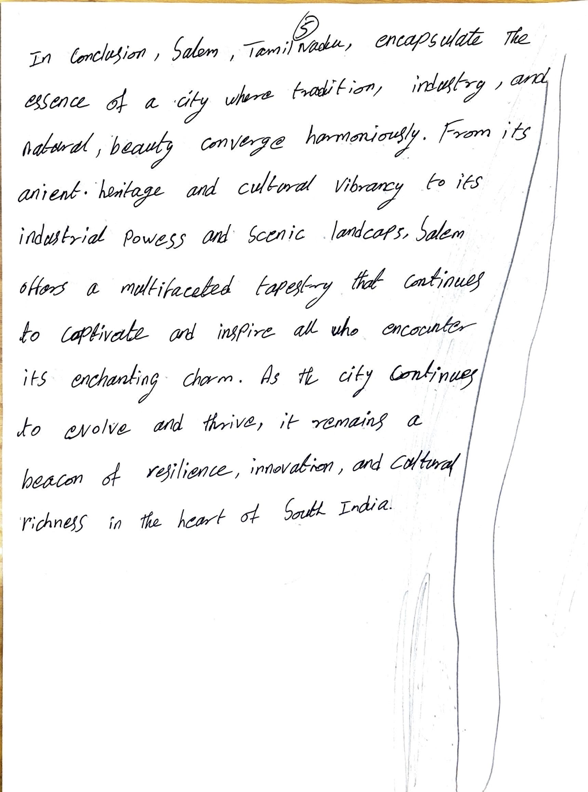 5
In Conclusion, Salem, Tamil Nadu, encapsulate The
essence of a city where tradition, industry, and
natural, beauty converge harmoniously. From its
anient. heritage and cultural vibrancy to its
industrial Powess and scenic landcaps, Salem
offers a multifaceted tapestry that continues
to captivate and inspire all who encounter
its enchanting charm. As the city Continues
to evolve and thrive, it remains a
beacon of resilience, innovation, and Cultural
richness in the heart of South India.